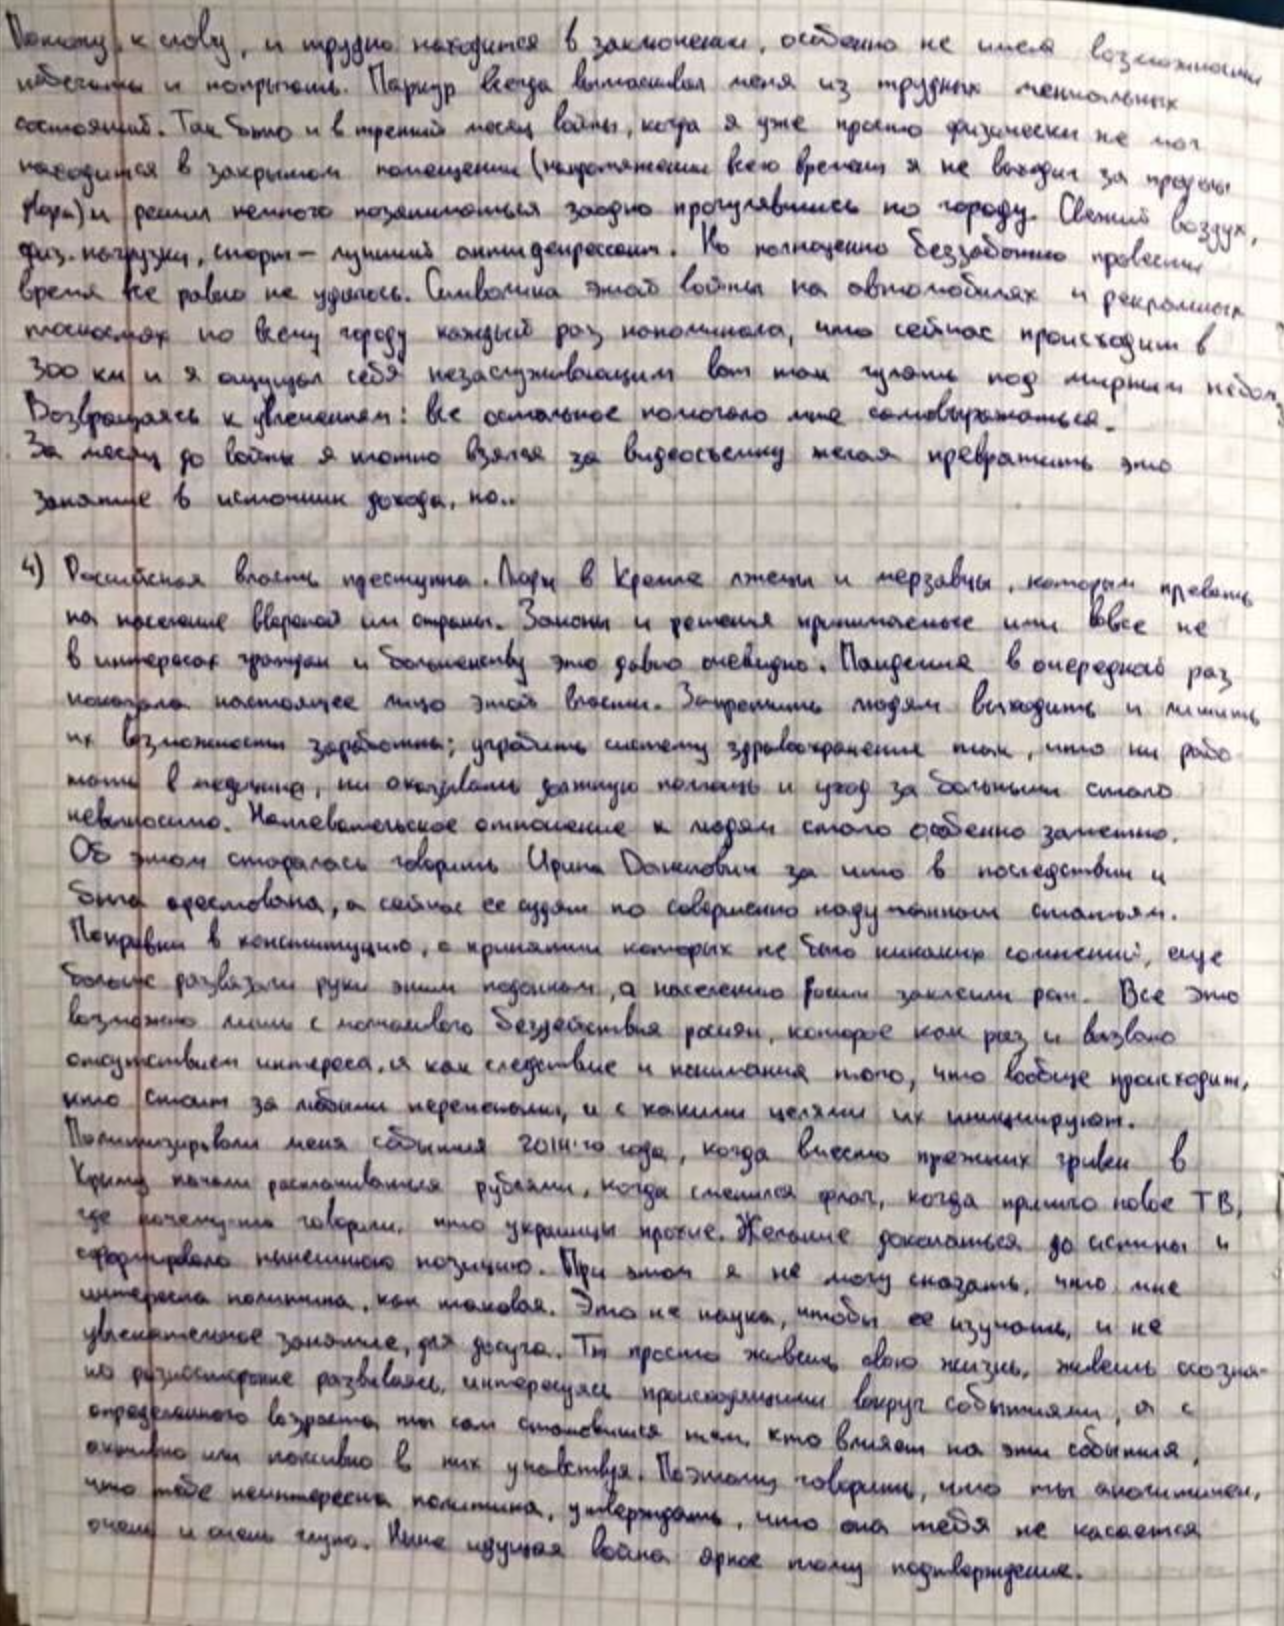 Потому, к слову, и трудно находится в заключении, особенно не имея возможности
набегаться и напрыгаться. Паркур всегда вытаскивал меня из трудных ментальных
состояний. Так было и в третий месяц войны, когда я уже просто физически не мог
находится в закрытом помещении (напротяжении всего времени я не выходил за пределы
двора) и решил немного позаниматься заодно прогулявшись по городу. Свежий воздух,
физ. нагрузки, спорт – лучший антидепрессант. Но полноценно беззаботно провести
время все равно не удалось. Символика этой войны на автомобилях и рекламных
плоскостях по всему городу каждый раз напоминала, что сейчас происходит в
300 км и я ощущал себя незаслуживающим вот так гулять под мирным небом.
Возвращаясь к увлечениям: все остальное помогало мне самовыражаться.
За месяц до войны я плотно взялся за видеосъемку желая превратить это
занятие в источник дохода, но..
4) Российская власть преступна. Люди в Кремле лжецы и мерзавцы, которым плевать
на население вверенной им страны. Законы и решения принимаемые ими вовсе не
в интересах граждан и большенству это давно очевидно. Пандемия в очередной раз
показала настоящее лицо этой власти. Запретить людям выходить и лишить
их возможности заработать; угробить систему здравоохранения так, что ни рабо-
тать в медицине, ни оказывать должную помощь и уход за больными стало
невыносимо. Наплевательское отношение к людям стало особенно заметно.
Об этом старалась говорить Ирина Данилович за что в последствии и
была арестована, а сейчас ее судят по совершенно надуманным статьям.
Поправки в конституцию, о принятии которых не было никаких сомнений, еще
больше развязали руки этим подонкам, а населению России заклеили рот. Все это
возможно лишь с молчаливого бездействия россиян, которое как раз и вызвано
отсутствием интереса, и как следствие и понимания того, что вообще происходит,
кто стоит за любыми переменами, и с какими целями их инициируют.
Политизировали меня события 2014-го года, когда вместо прежних гривен в
Крыму начали расплачиваться рублями, когда сменился флаг, когда пришло новое ТВ,
где почему-то говорили, что украинцы плохие. Желание докопаться до истины и
сформировало нынешнюю позицию. При этом я не могу сказать, что мне
интересна политика, как таковая. Это не наука, чтобы ее изучать, и не
увлекательное занятие, для досуга. Ты просто живешь свою жизнь, живешь осозна-
но разностороннe развиваясь, интересуясь происходящими вокруг событиями, а с
определенного возраста ты сам становишься тем, кто влияет на эти события,
активно или пассивно в них учавствуя. Поэтому говорить, что ты аполитичен,
что тебе неинтересна политика, утверждать, что она тебя не касается
очень и очень глупо. Ныне идущая война яркое тому подтверждение.